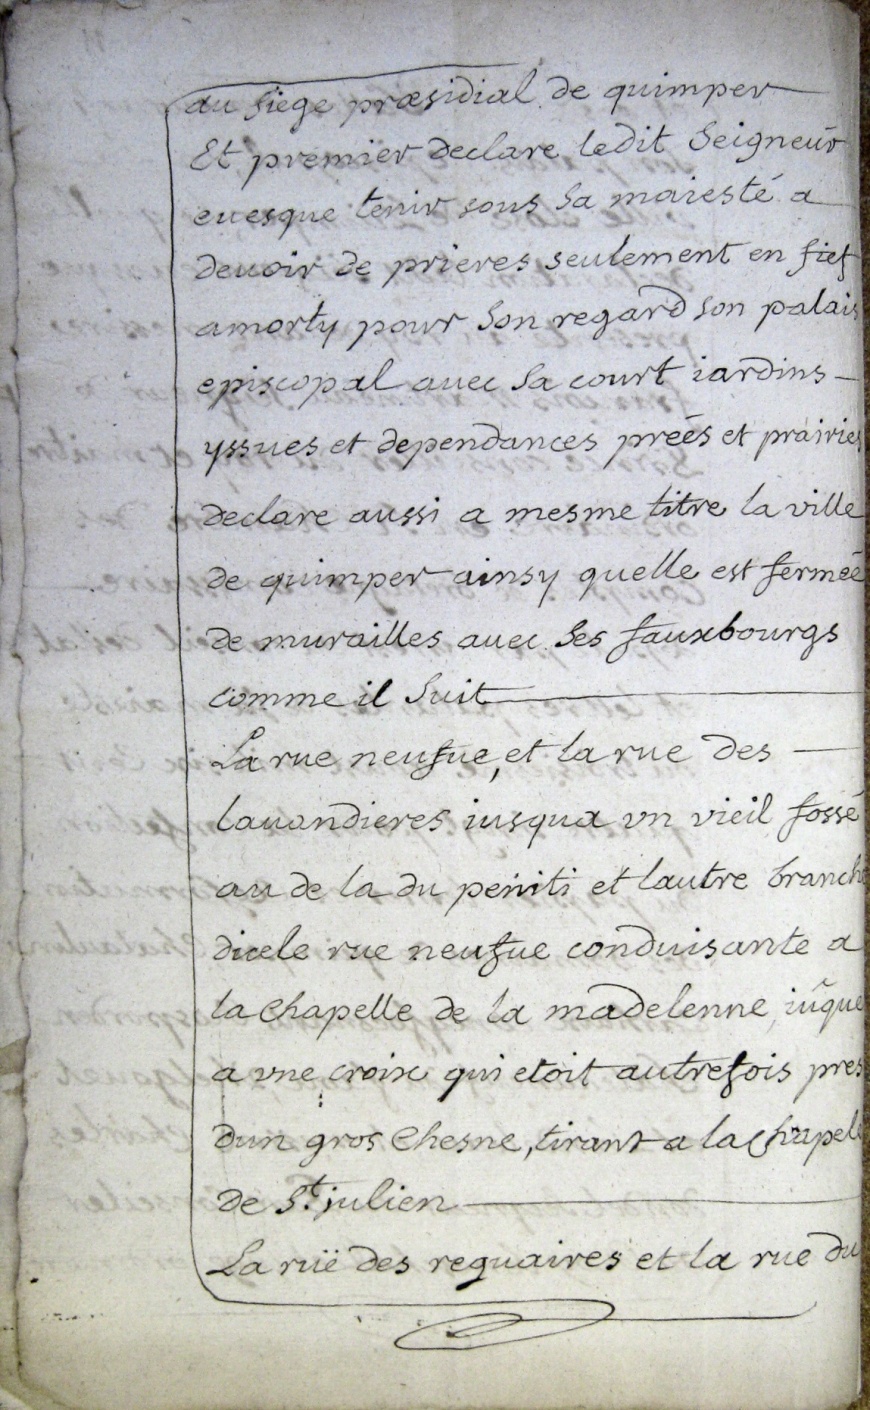 au siege præsidial de quimper
Et premier declare ledit Seigneur
euesque tenir sous sa maiesté a
deuoir de prieres seulement en fief
amorty pour son regard son palais
episcopal auec sa court iardins
yssues et dependances preés et prairies
declare aussi a mesme titre la ville
de quimper ainsy quelle est fermeé
de murailles auec ses fauxbourgs
comme il suit
La rue neufue, et la rue des
lauandieres iusqua vn vieil fossé
au de la du peniti et lautre branche
dicele rue neufue conduisante a
la Chapelle de la madelenne, iuq̃ue
a vne croix qui etoit autrefois pres
dun gros Chesne, tirant a la Chapele
de St. julien
La ruë des reguaires et la rue du